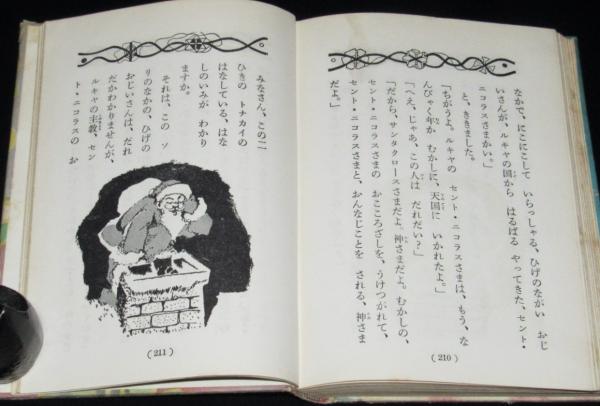 なかで、にこにこして いらっしゃる、ひげのながい おじ
いさんが、ルキヤの国から はるばる やってきた、セント・
ニコラスさまかい。」
と、ききました。
「ちがうよ。ルキヤの セント・ニコラスさまは、もう、な
んびゃく年か むかしに、天国に いかれたよ。」
「へえ、じゃあ、この人は だれだい？」
「だから、サンタクロースさまだよ。神さまだよ。むかしの、
セント・ニコラスさまの おこころざしを、うけつがれて、
セント・ニコラスさまと、おんなじことを される、神さま
だよ。」
(210)
みなさん、この二
ひきの トナカイの
はなしている、はな
しのいみが わかり
ますか。
それは、この ソ
リのなかの、ひげの
おじいさんは、だれ
だかわかりませんが、
ルキヤの主教、セン
ト・ニコラスの お
(211)